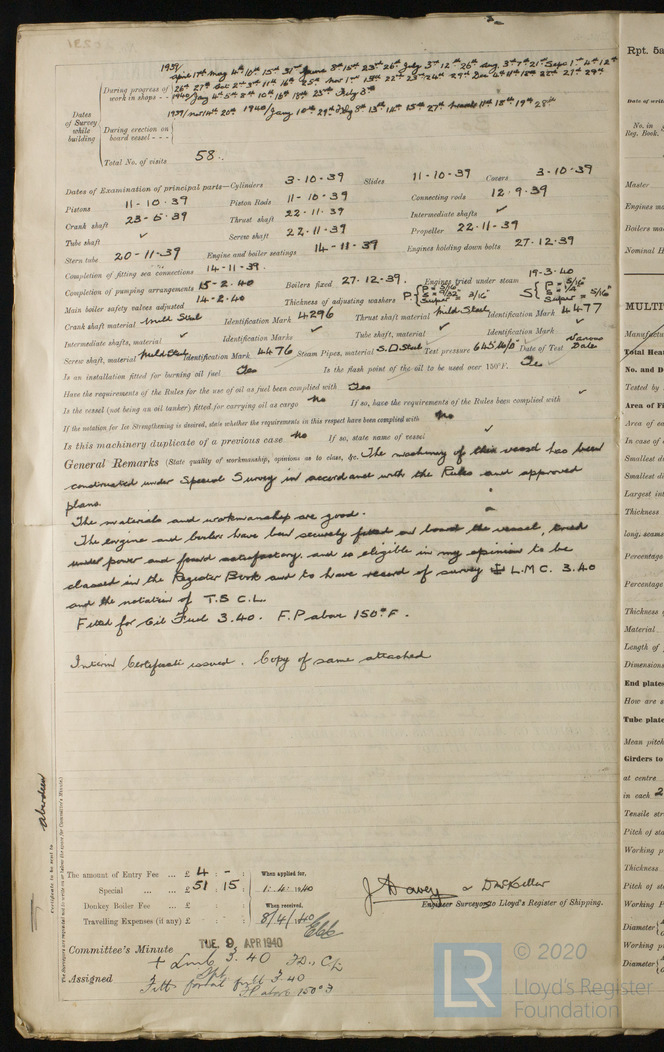 1939
April 17th May 4th 10th 15th 31st June 8th 15th 23rd 26th July 3rd 12th 26th Aug. 3rd 7th 21st Sept 1st 4th 12th
During progress of work in shops - -
1940 Jany 4th 5th 8th 10th 16th 18th 23rd Feby 3rd
Dates of Survey while building
During erection on board vessel - - -
Total No. of visits 58.
Dates of Examination of principal parts—Cylinders 3-10-39 Slides 11-10-39 Covers 3-10-39
Pistons 11-10-39 Piston Rods 11-10-39 Connecting rods 12.9.39
Crank shaft 23-6-39 Thrust shaft 22-11-39 Intermediate shafts ✓
Tube shaft ✓ Screw shaft 22-11-39 Propeller 22-11-39
Stern tube 20-11-39 Engine and boiler seatings 14-11-39 Engines holding down bolts 27.12.39
Completion of fitting sea connections 14-11-39.
Completion of pumping arrangements 15-2.40 Boilers fixed 27-12-39. Engines tried under steam 19-3-40
Main boiler safety valves adjusted 14-2.40 Thickness of adjusting washers
Crank shaft material Mild Steel Identification Mark 4296 Thrust shaft material Mild Steel Identification Mark 4477
Intermediate shafts, material ✓ Identification Marks ✓ Tube shaft, material ✓ Identification Mark ✓
Screw shaft, material Mild Steel Identification Mark 4476 Steam Pipes, material S.D Steel Test pressure 645 lb/□" Date of Test Various Dates
Is an installation fitted for burning oil fuel Yes Is the flash point of the oil to be used over 150°F. Yes ✓
Have the requirements of the Rules for the use of oil as fuel been complied with Yes
Is the vessel (not being an oil tanker) fitted for carrying oil as cargo No If so, have the requirements of the Rules been complied with ✓
If the notation for Ice Strengthening is desired, state whether the requirements in this respect have been complied with No
Is this machinery duplicate of a previous case No If so, state name of vessel ✓
General Remarks (State quality of workmanship, opinions as to class, &c. The machinery of this vessel has been
constructed under Special Survey in accordance with the Rules and approved
plans.
The materials and workmanship are good.
The engine and boilers have been securely fitted on board the vessel, tried
under power and found satisfactory, and is eligible in my opinion to be
classed in the Register Book and to have record of survey ✠ L.M.C. 3.40
and the notation of T.S C.L.
Fitted for Oil Fuel 3.40. F.P above 150°F.
Interim Certificate issued. Copy of same attached
Aberdeen
Certificate to be sent to
The amount of Entry Fee ... £ 4 : - :
Special ... ... £ 51 : 15 :
Donkey Boiler Fee ... £ : :
Travelling Expenses (if any) £ : :
When applied for,
1.4.1940
When received,
8/4/1940
Engineer Surveyors to Lloyd's Register of Shipping.
Committee's Minute TUE. 9 APR 1940
Assigned + LMC 3.40 FD., CL
Fitted for oil fuel 3.40
FP above 150°F
Rpt. 5a
Date of writ
No. in
Reg. Book.
Master
Engines ma
Boilers ma
Nominal H
MULTI
Manufactu
Total Heat
No. and D
Tested by
Area of Fi
Area of ea
In case of
Smallest d
Smallest d
Largest int
Thickness
long. seams
Percentage
Percentage
Thickness o
Material
Length of
Dimensions
End plates
How are s
Tube plate
Mean pitch
Girders to
at centre
in each 2
Tensile str
Pitch of sta
Working p
Thickness
Pitch of sta
Working P
Diameter
Working p
Diameter
LR
© 2020
Lloyd's Register
Foundation